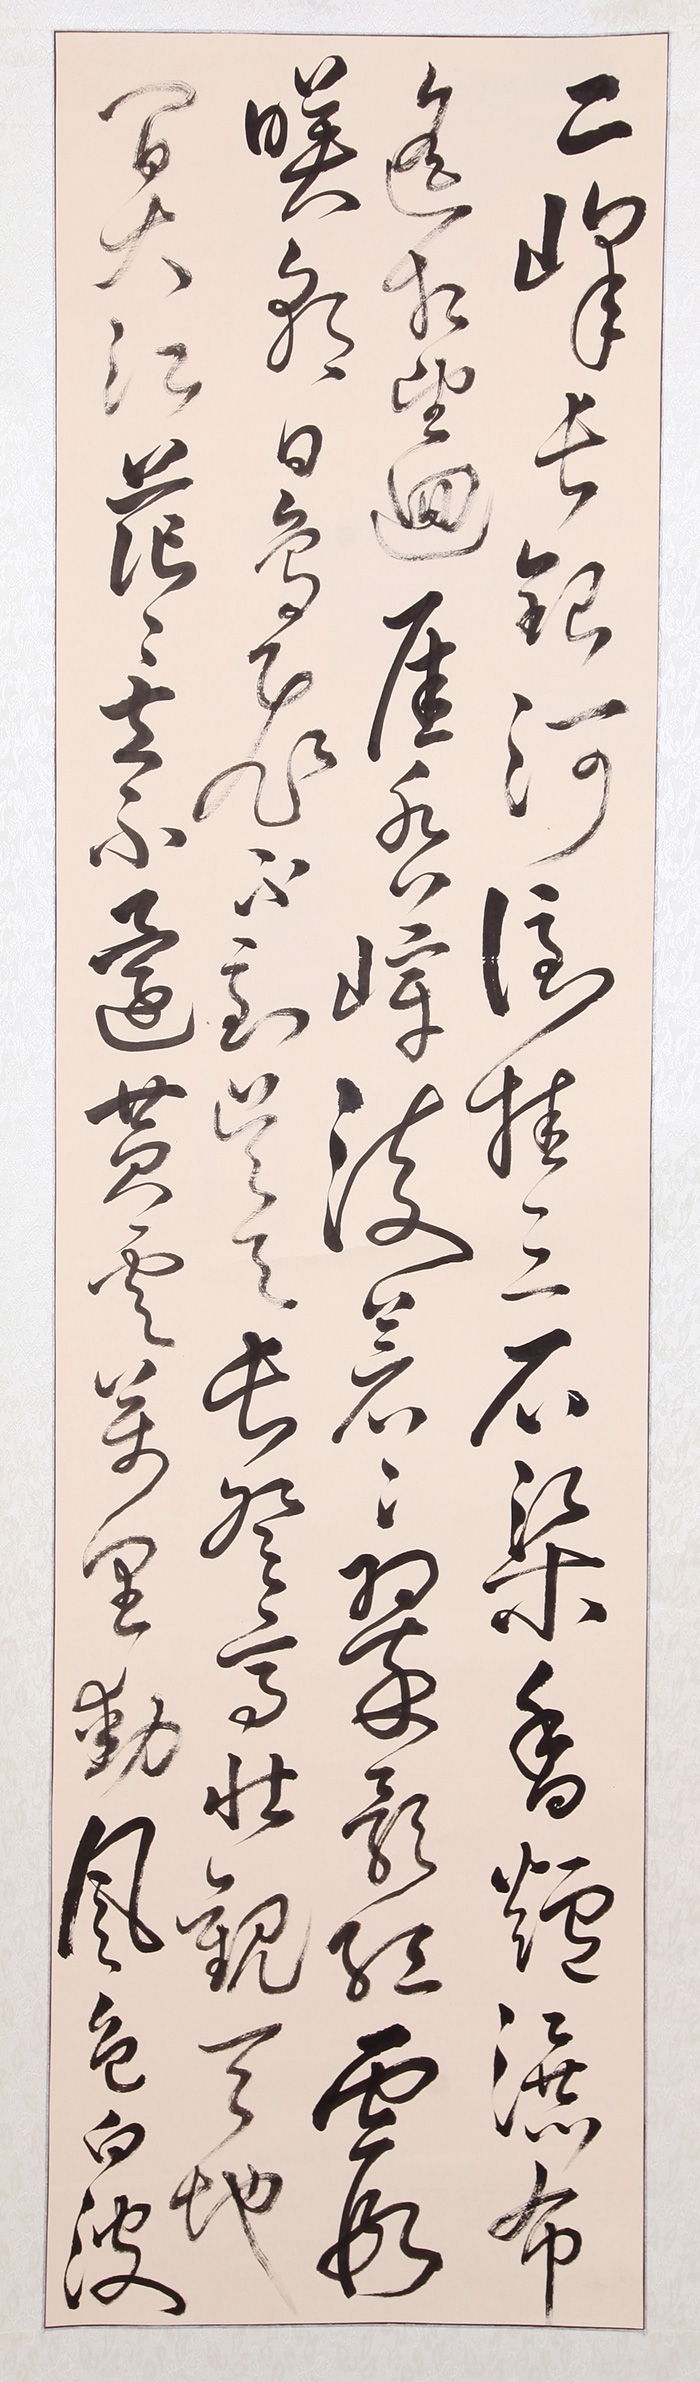 二峰長銀河倒挂三石梁香爐瀑布
遙相望迴崖沓嶂凌蒼〻翠影紅霞
映朝日鳥飛不到吳天長登高壯觀天地
間大江茫〻去不還黃雲萬里動風色白波